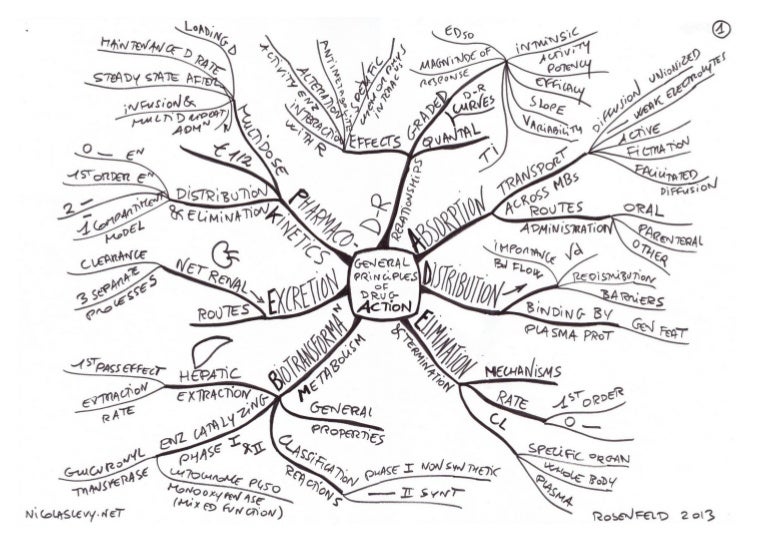 1
GENERAL
PRINCIPLES
OF
DRUG
ACTION
D-R
RELATIONSHIPS
GRADED
D-R
CURVES
QUANTAL
ED50
MAGNITUDE OF
RESPONSE
INTRINSIC
ACTIVITY
POTENCY
EFFICACY
SLOPE
VARIABILITY
TI
EFFECTS
ANTIMETABOLITE
ALTERATION
ACTIVITY ENZ
INTERACTION
WITH R
ABSORPTION
TRANSPORT
ACROSS MBS
DIFFUSION UNIONIZED
WEAK ELECTROLYTES
ACTIVE
FILTRATION
FACILITATED
DIFFUSION
ROUTES
ADMINISTRATION
ORAL
PARENTERAL
OTHER
DISTRIBUTION
IMPORTANCE
BD FLOW
Vd
REDISTRIBUTION
BARRIERS
BINDING BY
PLASMA PROT
GEN FEAT
ELIMINATION
& TERMINATION
MECHANISMS
RATE
1ST ORDER
0 —
CL
SPECIFIC ORGAN
WHOLE BODY
PLASMA
BIOTRANSFORMAN
METABOLISM
GENERAL
PROPERTIES
CLASSIFICATION
REACTIONS
PHASE I NONSYNTHETIC
— II SYNT
ENZ CATALYZING
PHASE I & II
GLUCURONYL
TRANSFERASE
CYTOCHROME P450
MONOOXYGENASE
(MIXED FUNCTION)
HEPATIC
EXTRACTION
1ST PASS EFFECT
EXTRACTION
RATE
EXCRETION
NET RENAL
CLEARANCE
3 SEPARATE
PROCESSES
ROUTES
PHARMACO-
KINETICS
MULTIDOSE
LOADING D
MAINTENANCE D RATE
STEADY STATE AFTER
INFUSION &
t 1/2
DISTRIBUTION
& ELIMINATION
0 — EN
1ST ORDER EN
2 —
1 COMPARTIMENT
MODEL
NICOLASLEVY.NET
ROSENFELD 2013